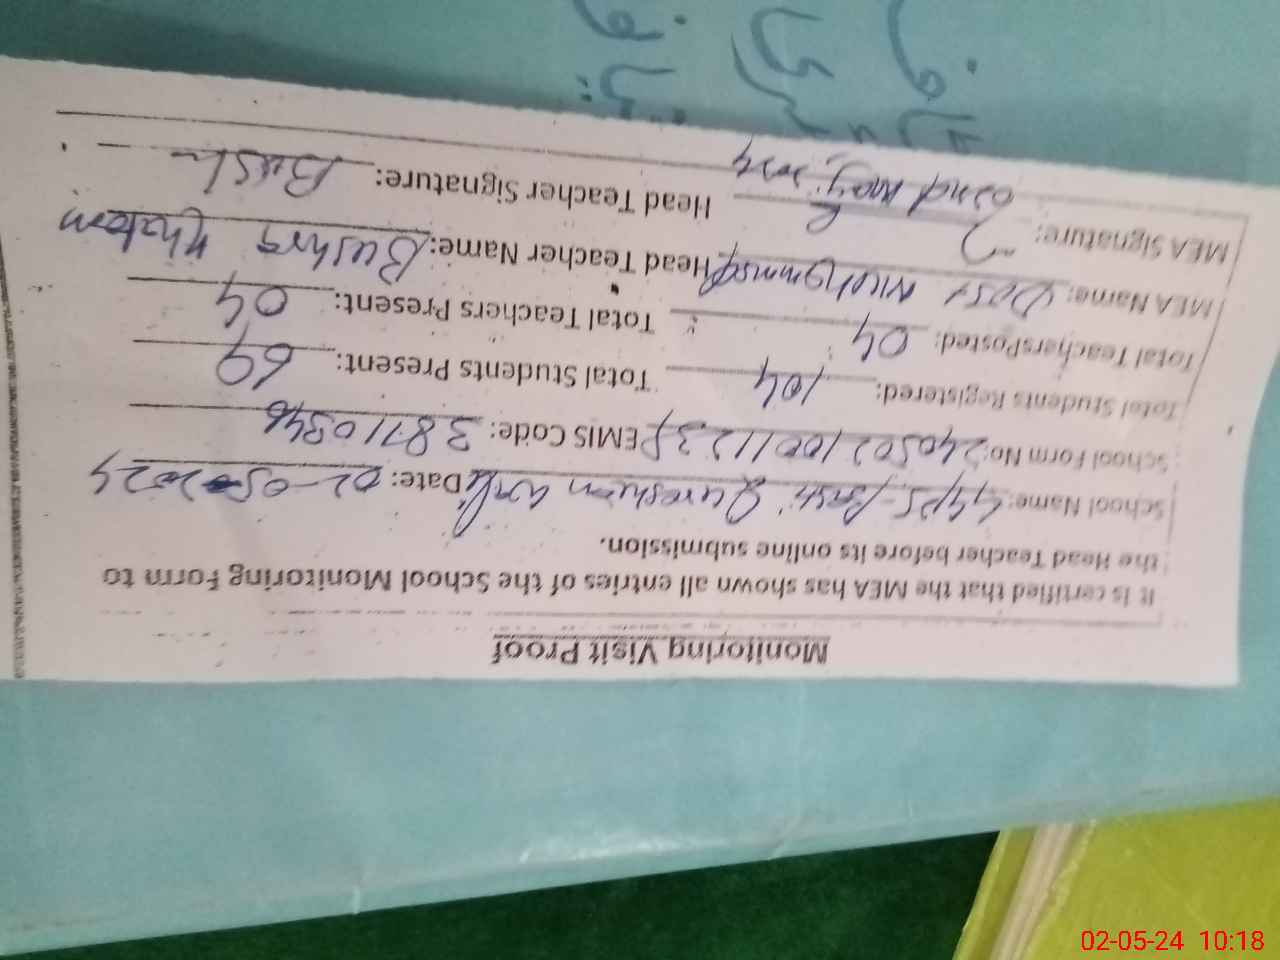 Monitoring Visit Proof
It is certified that the MEA has shown all entries of the School Monitoring Form to
the Head Teacher before its online submission.
School Name: GGPS-Basti Qureshian wali Date: 02-05-2024
School Form No: 2405021001123P EMIS Code: 38710346
Total Students Registered: 104 Total Students Present: 69
Total Teachers Posted: 04 Total Teachers Present: 04
MEA Name: Dost Muhammad Head Teacher Name: Bushra Khatoon
MEA Signature: Head Teacher Signature: Bush
02nd May, 2024
02-05-24 10:18